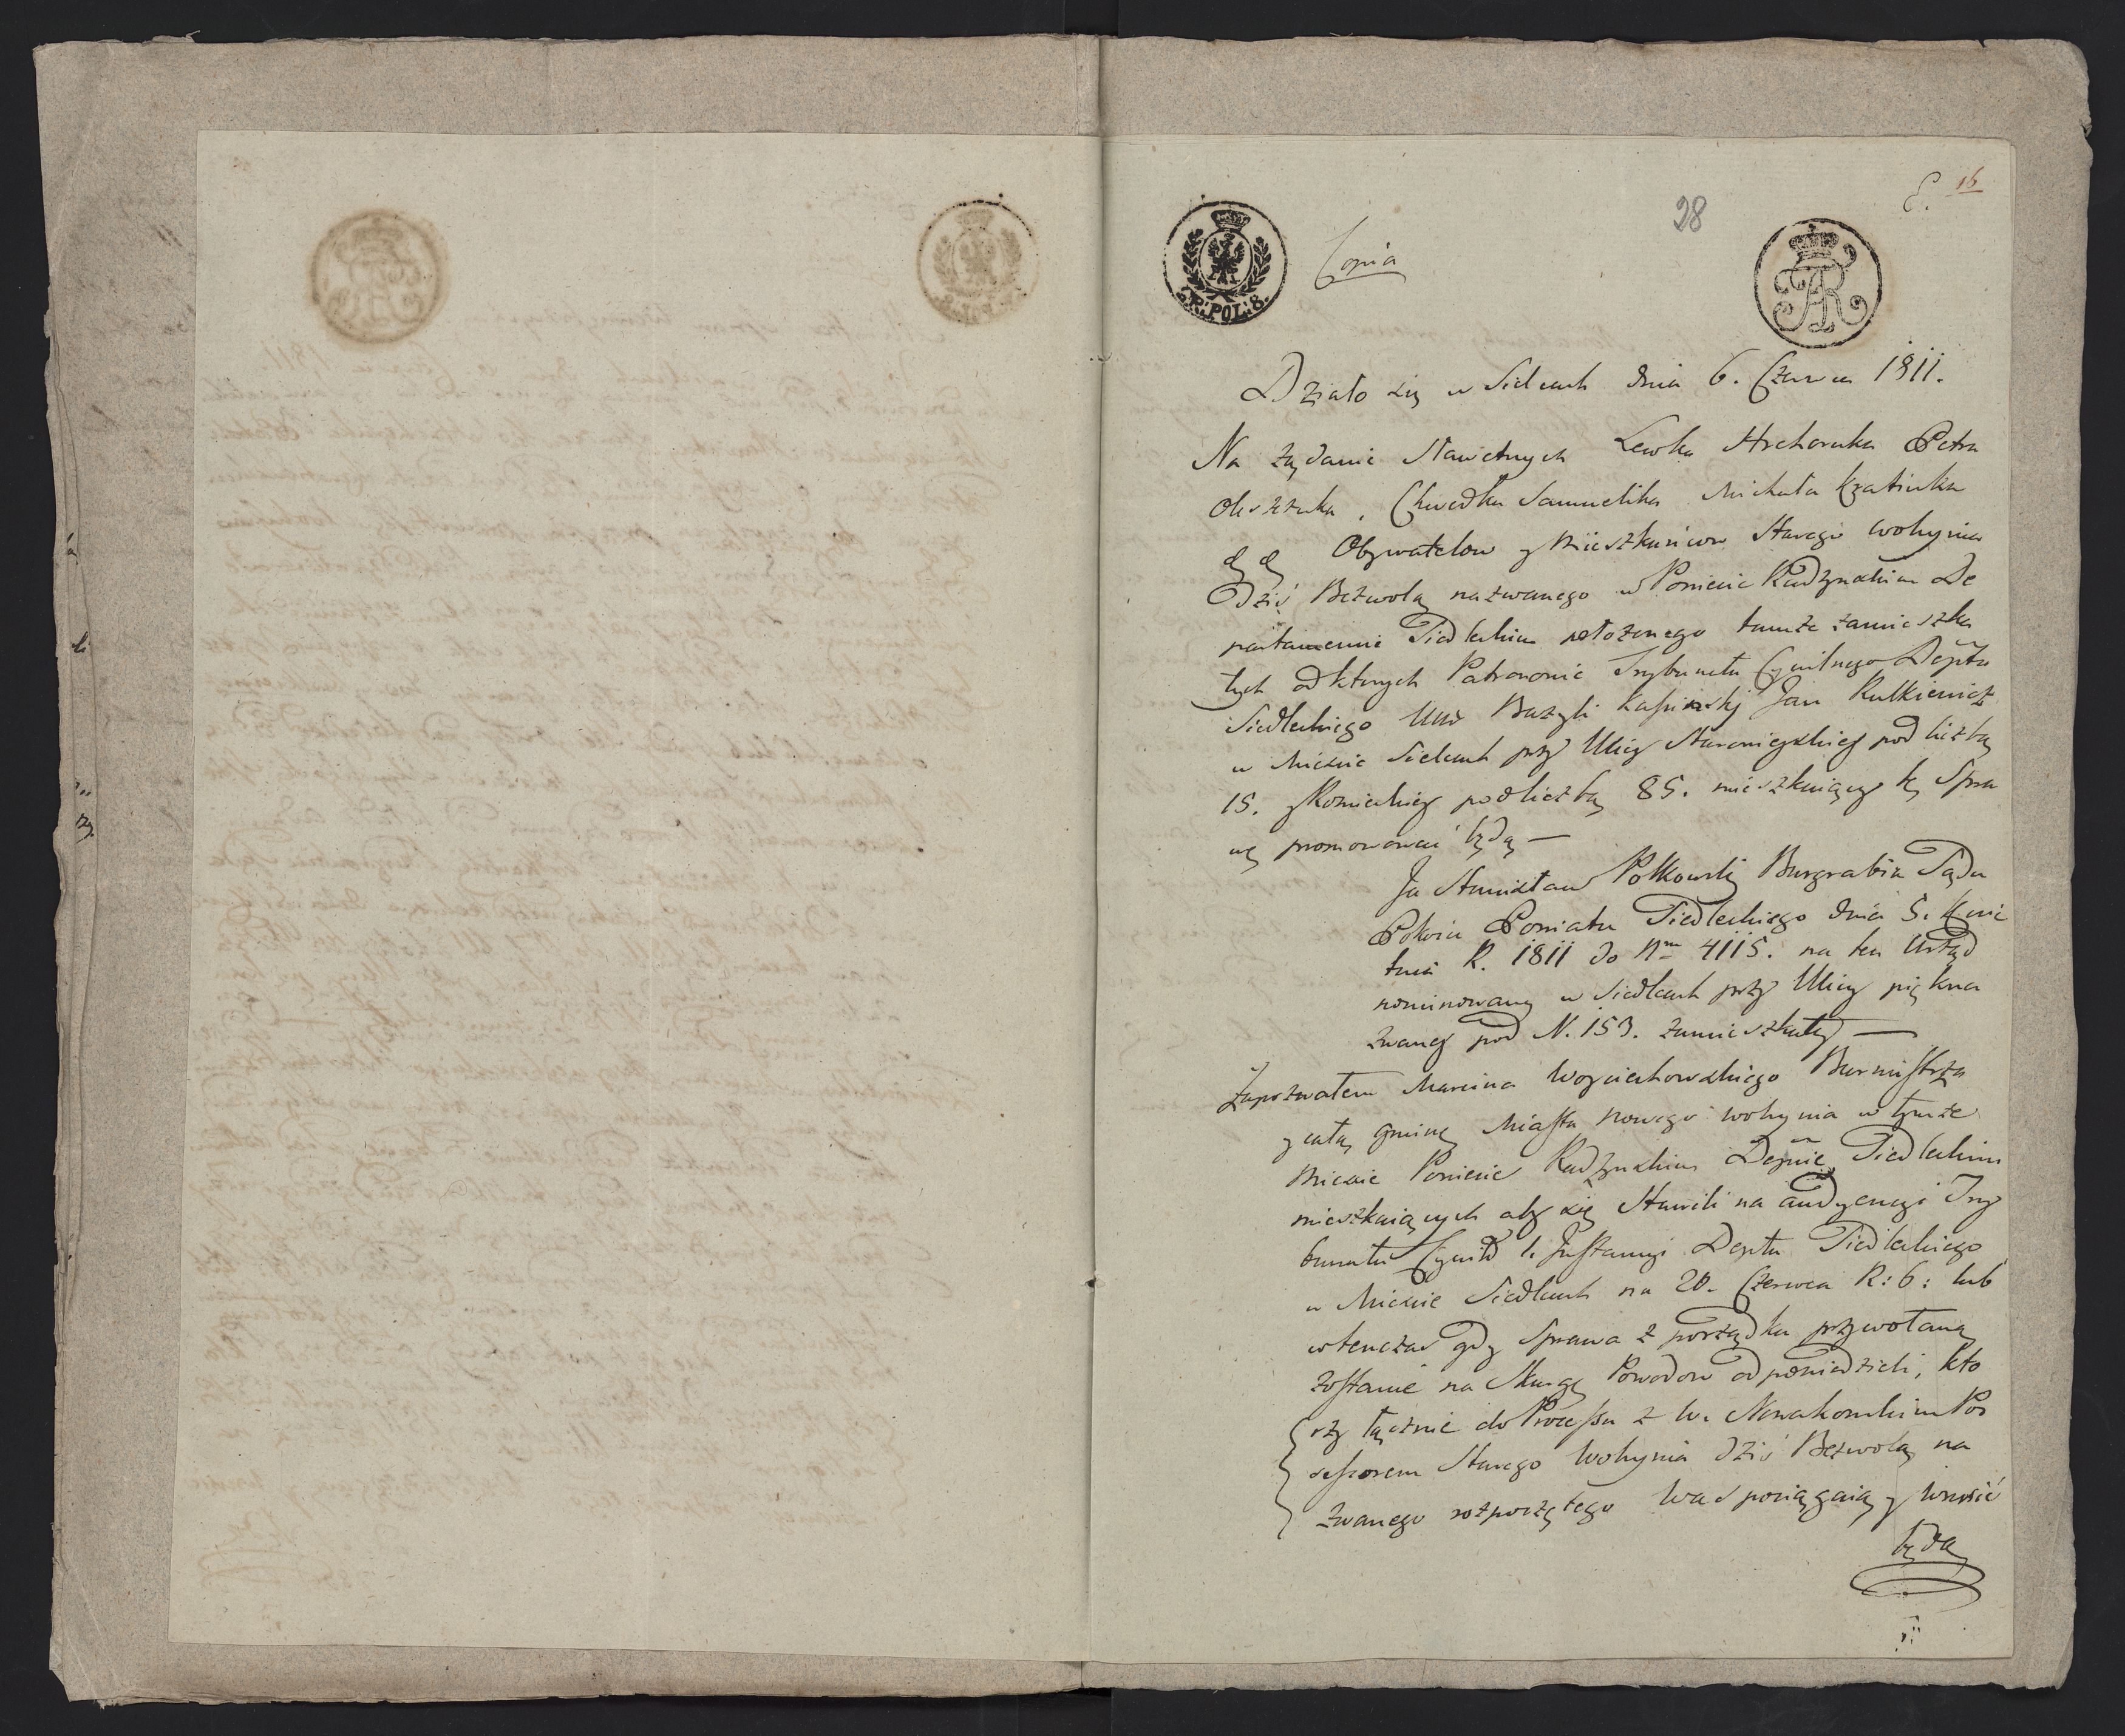 E. 16
28
GR: POL: 8.
Copia
AR
Działo się w Sielcach dnia 6. Czerwca 1811.
Na żądanie Sławetnych Lewka Petra
Chwedka Samuelika Michała
Obywatelow y Mieszkańcow Starego Wohynia
Dziś Bezwolą nazwanego w Powiecie Radzynskim De
partamencie Siedleckim położonego tamże zamieszka
łych od ktorych Patronowie Trybunału Cywilnego Deptu
Siedleckiego Bazyli Jan Rulkiewicz
w Mieście Sielcach przy Ulicy pod liczbą
15. y pod liczbą 85. mieszkaiący tę Spra
wę promowować będą —
Ja Stanisław Polkowski Burgrabia Sądu
Pokoiu Powiatu Siedleckiego dnia 5. Kwie
tnia R. 1811 do Nru 4115. na ten Urząd
nominowany w Siedlcach przy Ulicy piękna
zwaney pod N. 153. zamieszkały —
Zapozwałem Marcina Woyciechowskiego Burmistrza
y całą gminę Miasta Nowego Wohynia w tymże
Mieście Powiecie Radzynskim Depcie Siedleckim
mieszkaiących aby się Stawili na audyencyi Try
bunału Cywil 1. Instancyi Deptu Siedleckiego
w Mieście Siedlcach na 20. Czerwca R: b: lub
wtenczas gdy Sprawa z porządku przywołaną
zostanie na Skargę Powodow odpowiedzieli, kto
rzy łącznie do Processu z W. Nowakowskim Pos
sessorem Starego Wohynia dziś Bezwolą na
zwanego rozpoczętego Was pociągaią y wnosić
będą